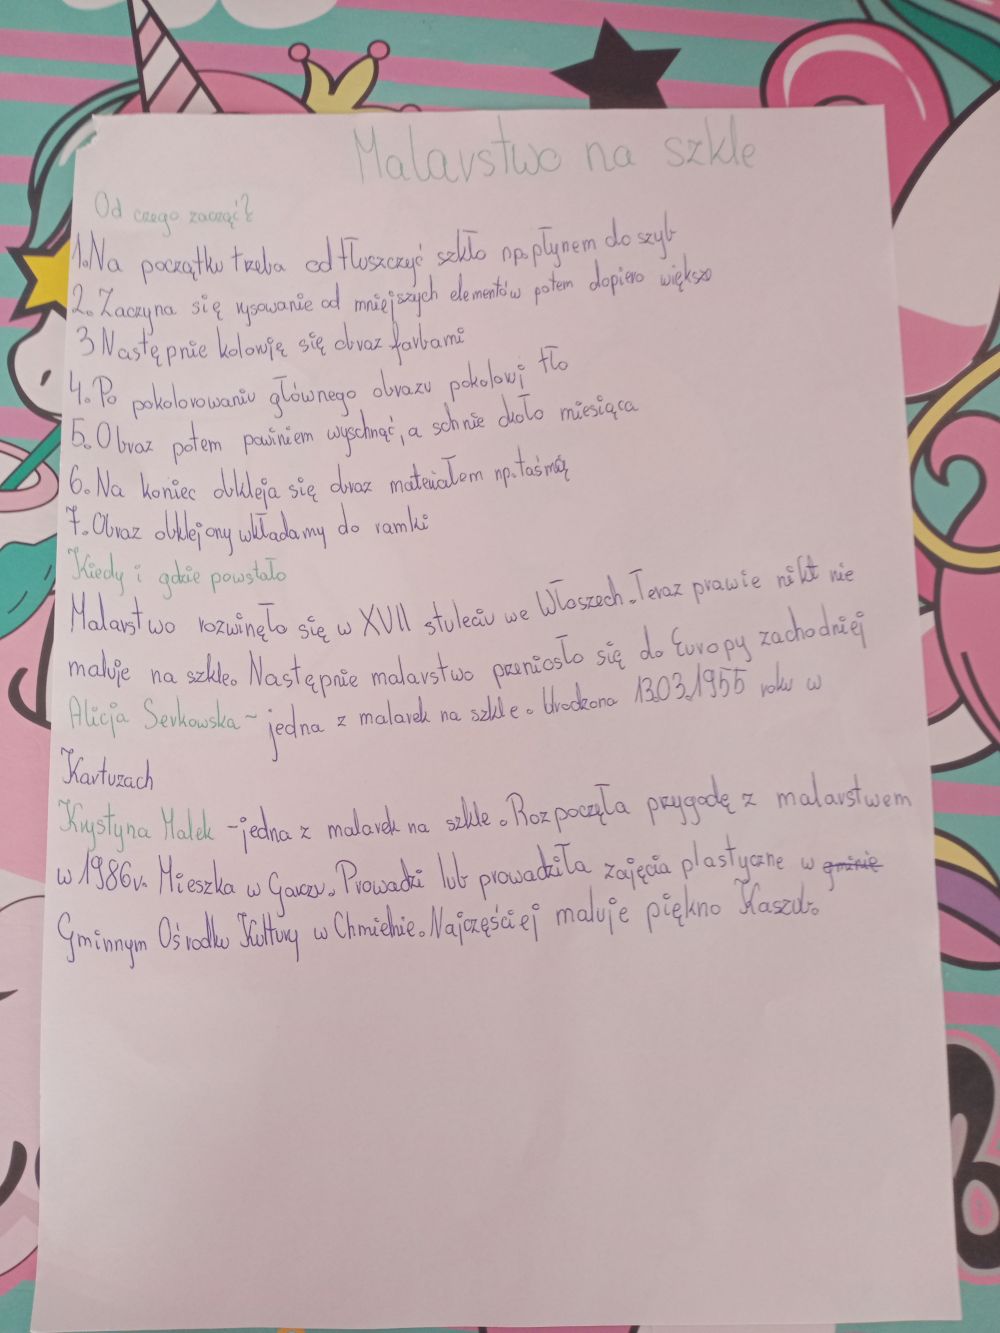 Malarstwo na szkle
Od czego zacząć?
1.Na początku trzeba odtłuszczyć szkło np.płynem do szyb
2.Zaczyna się rysowanie od mniejszych elementów potem dopiero większe
3 Następnie koloruję się obraz farbami
4.Po pokolorowaniu głównego obrazu pokoloruj tło
5.Obraz potem powiniem wyschnąć, a schnie około miesiąca
6.Na koniec obkleja się obraz materiałem np.taśmą
7.Obraz obklejony wkładamy do ramki
Kiedy i gdzie powstało
Malarstwo rozwinęło się w XVII stuleciu we Włoszech.Teraz prawie nikt nie
maluje na szkle. Następnie malarstwo przeniosło się do Europy zachodniej
Alicja Serkowska~ jedna z malarek na szkle. Urodzona 13.03.1955 roku w
Kartuzach
Krystyna Malek -jedna z malarek na szkle.Rozpoczęła przygodę z malarstwem
w 1986r. Mieszka w Garczu.Prowadzi lub prowadziła zajęcia plastyczne w gminie
Gminnym Ośrodku Kultury w Chmielnie.Najczęściej maluje piękno Kaszub.